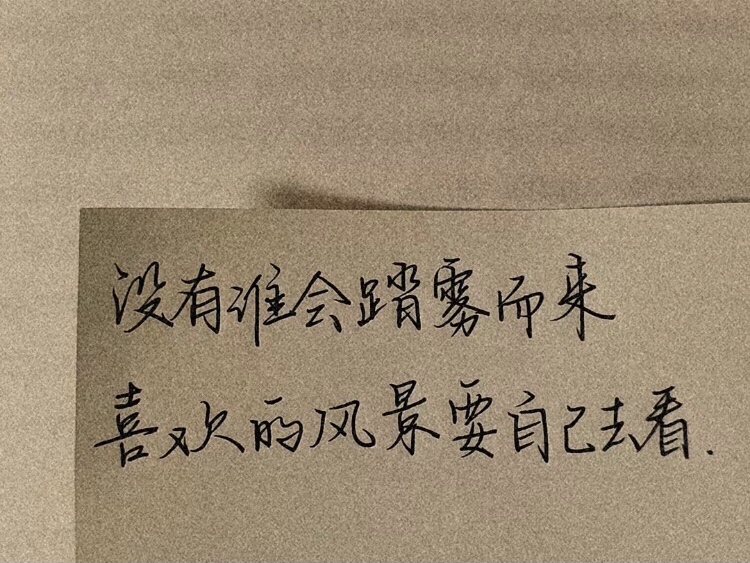 没有谁会踏雾而来
喜欢的风景要自己去看.